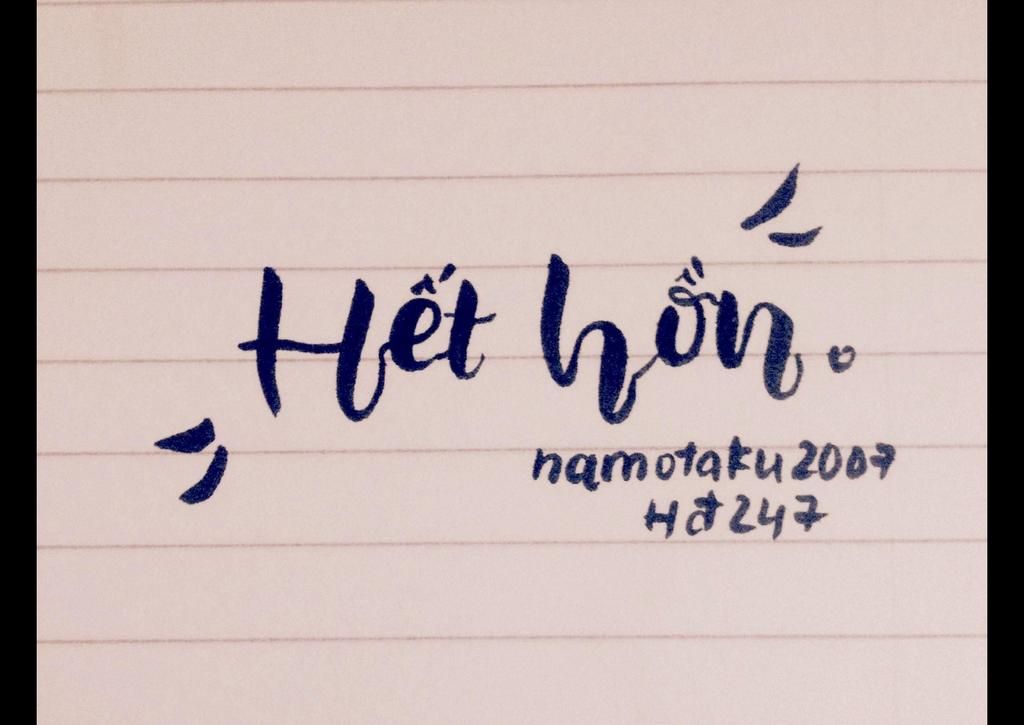 Hết hồn.
namotaku2007
Hđ247